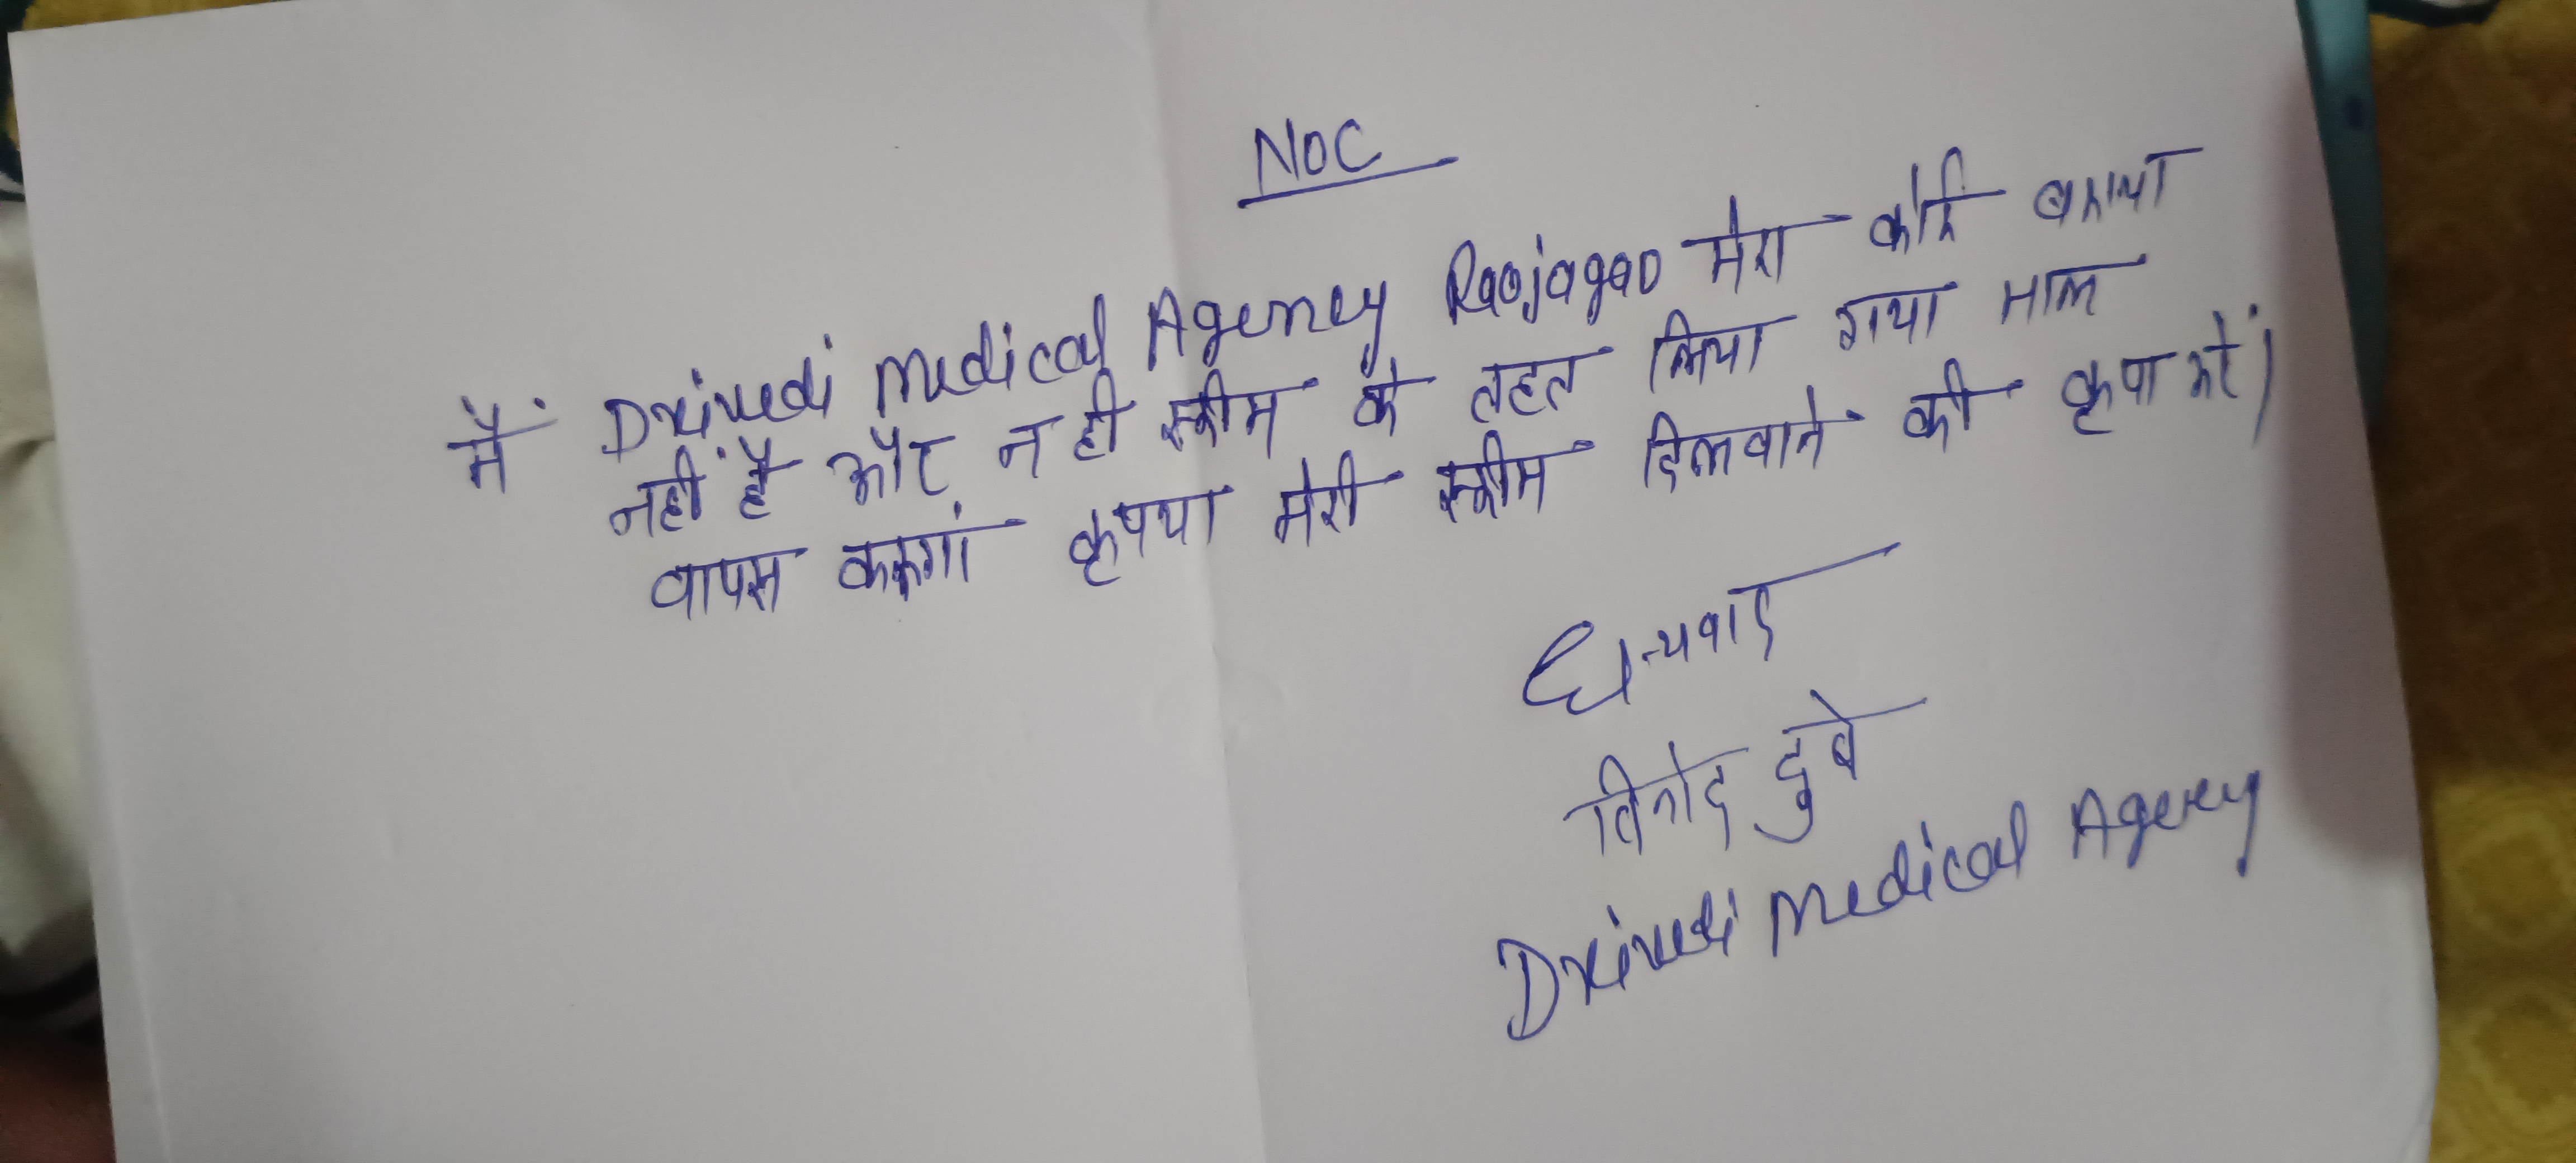 NOC
मैं Drivedi Medical Agency Raojagao मेरा कोई बकाया
नहीं है और न ही स्कीम के तहत लिया गया माल
वापस करूगां कृपया मेरी स्कीम दिलवाने की कृपा करें।
धन्यवाद
विनोद दुबे
Drivedi Medical Agency